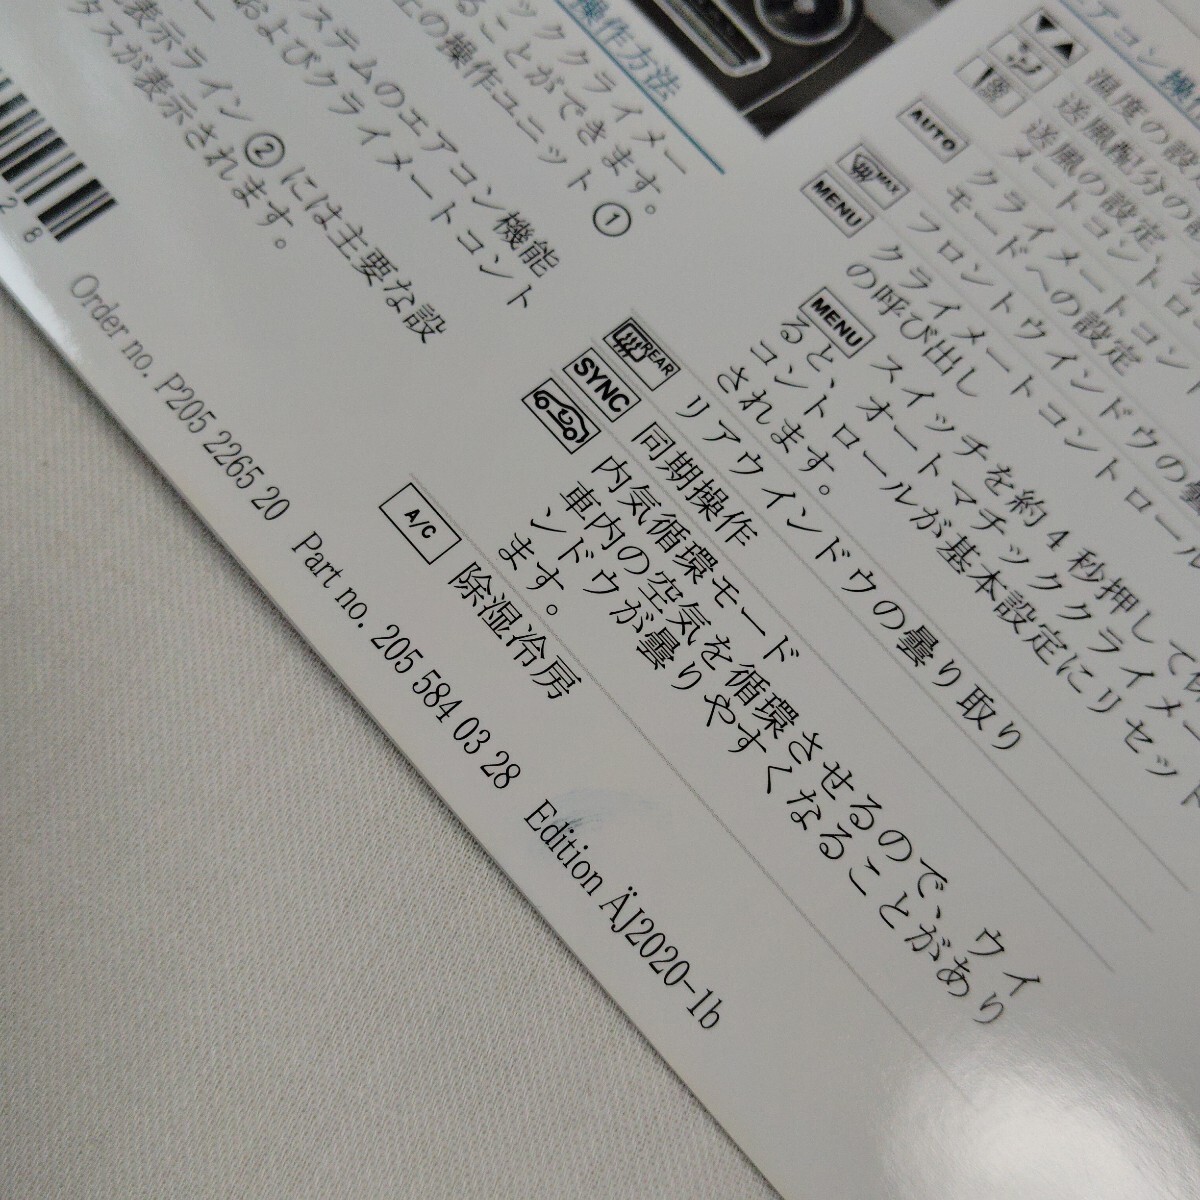 操作方法
ッククライメー
ることができます。
上の操作ユニット①
システムのエアコン機能
およびクライメートコント
表示ライン②には主要な設
タスが表示されます。
28
エアコン操
温度の設
送風配分の
送風の設定、オ
メートコントロ
AUTO クライメートコント
モードへの設定
MAX フロントウインドウの曇
MENU クライメートコントロール
の呼び出し
MENU スイッチを約4秒押して
ると、オートマチッククライメー
コントロールが基本設定にリセット
されます。
REAR リアウインドウの曇り取り
SYNC 同期操作
内気循環モード
車内の空気を循環させるので、ウイ
ンドウが曇りやすくなることがあり
ます。
A/C 除湿冷房
Order no. P205 2265 20 Part no. 205 584 03 28 Edition ÄJ2020-1b